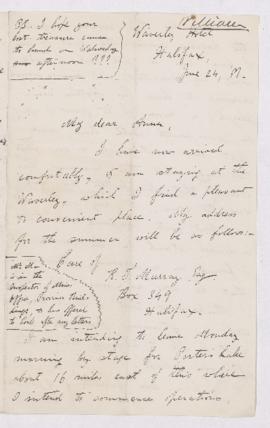 William
Waverley Hotel
Halifax,
June 24, '97.
P.S. I hope your
lost treasure came
to hand on Saturday
afternoon ???
My dear Anna,
I have now arrived
comfortably, & am staying at the
Waverley, which I find a pleasant
& convenient place. My address
for the summer will be as follows:-
Care of
R. T. Murray, Esq
Box 349
Halifax.
Mr. M.
is in the
Inspector of Mines
Office,
& has offered
to look after my letters
I am intending to leave Monday
morning by stage for Porters Lake
about 16 miles east of this where
I intend to commence operations